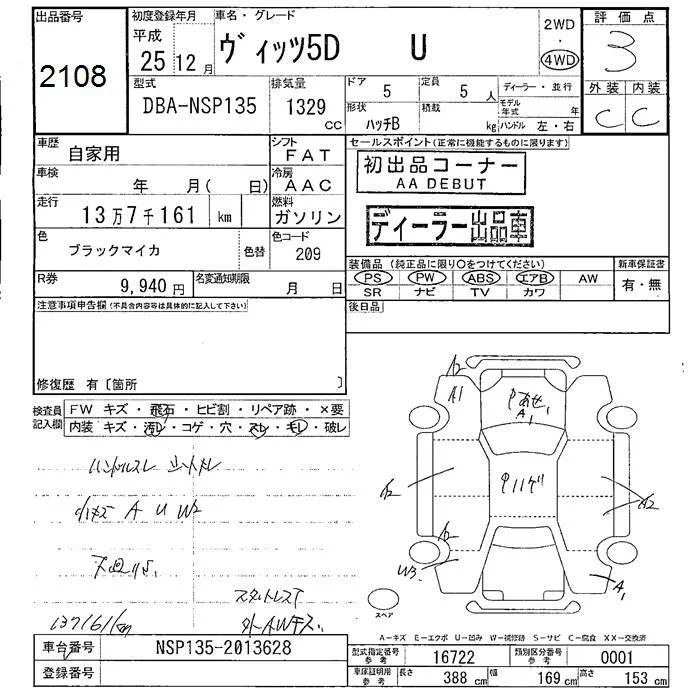 出品番号
2108
初度登録年月
平成
25 12月
車名・グレード
ヴィッツ5D U
2WD
・
4WD
評価点
3
外装 内装
C C
型式
DBA-NSP135
排気量
1329
CC
ドア
5
定員
5 人
ディーラー・並行
形状
ハッチB
積載
kg
モデル年式 年
ハンドル 左・右
車歴
自家用
シフト
FAT
車検
年 月( 日)
冷房
AAC
走行
13万7千161 km
燃料
ガソリン
色
ブラックマイカ
色替
色コード
209
R券
9,940円
名変通知期限
月 日
セールスポイント(正常に機能するものに限ります)
初出品コーナー
AA DEBUT
ディーラー出品車
装備品(純正品に限り○をつけてください)
新車保証書
PS PW ABS エアB AW
SR ナビ TV カワ
有・無
後日品
注意事項申告欄(不具合内容等は具体的に記入して下さい)
修復歴 有〔箇所 〕
検査員記入欄
FW キズ・飛石・ヒビ割・リペア跡・×要
内装 キズ・汚レ・コゲ・穴・スレ・モレ・破レ
ハンドルスレ シートスレ
小キズ A U W2
下廻サビ
スタットレスT
137161km
外AWキズ
A2
A1
A1
A2
A2
A2
W3
A1
スペア
A-キズ E-エクボ U-凹み W-補修跡 S-サビ C-腐食 XX-交換済
車台番号
NSP135-2013628
登録番号
型式指定番号
参考
16722
類別区分番号
参考
0001
車庫証明用
参考
長さ 388 cm
幅 169 cm
高さ 153 cm